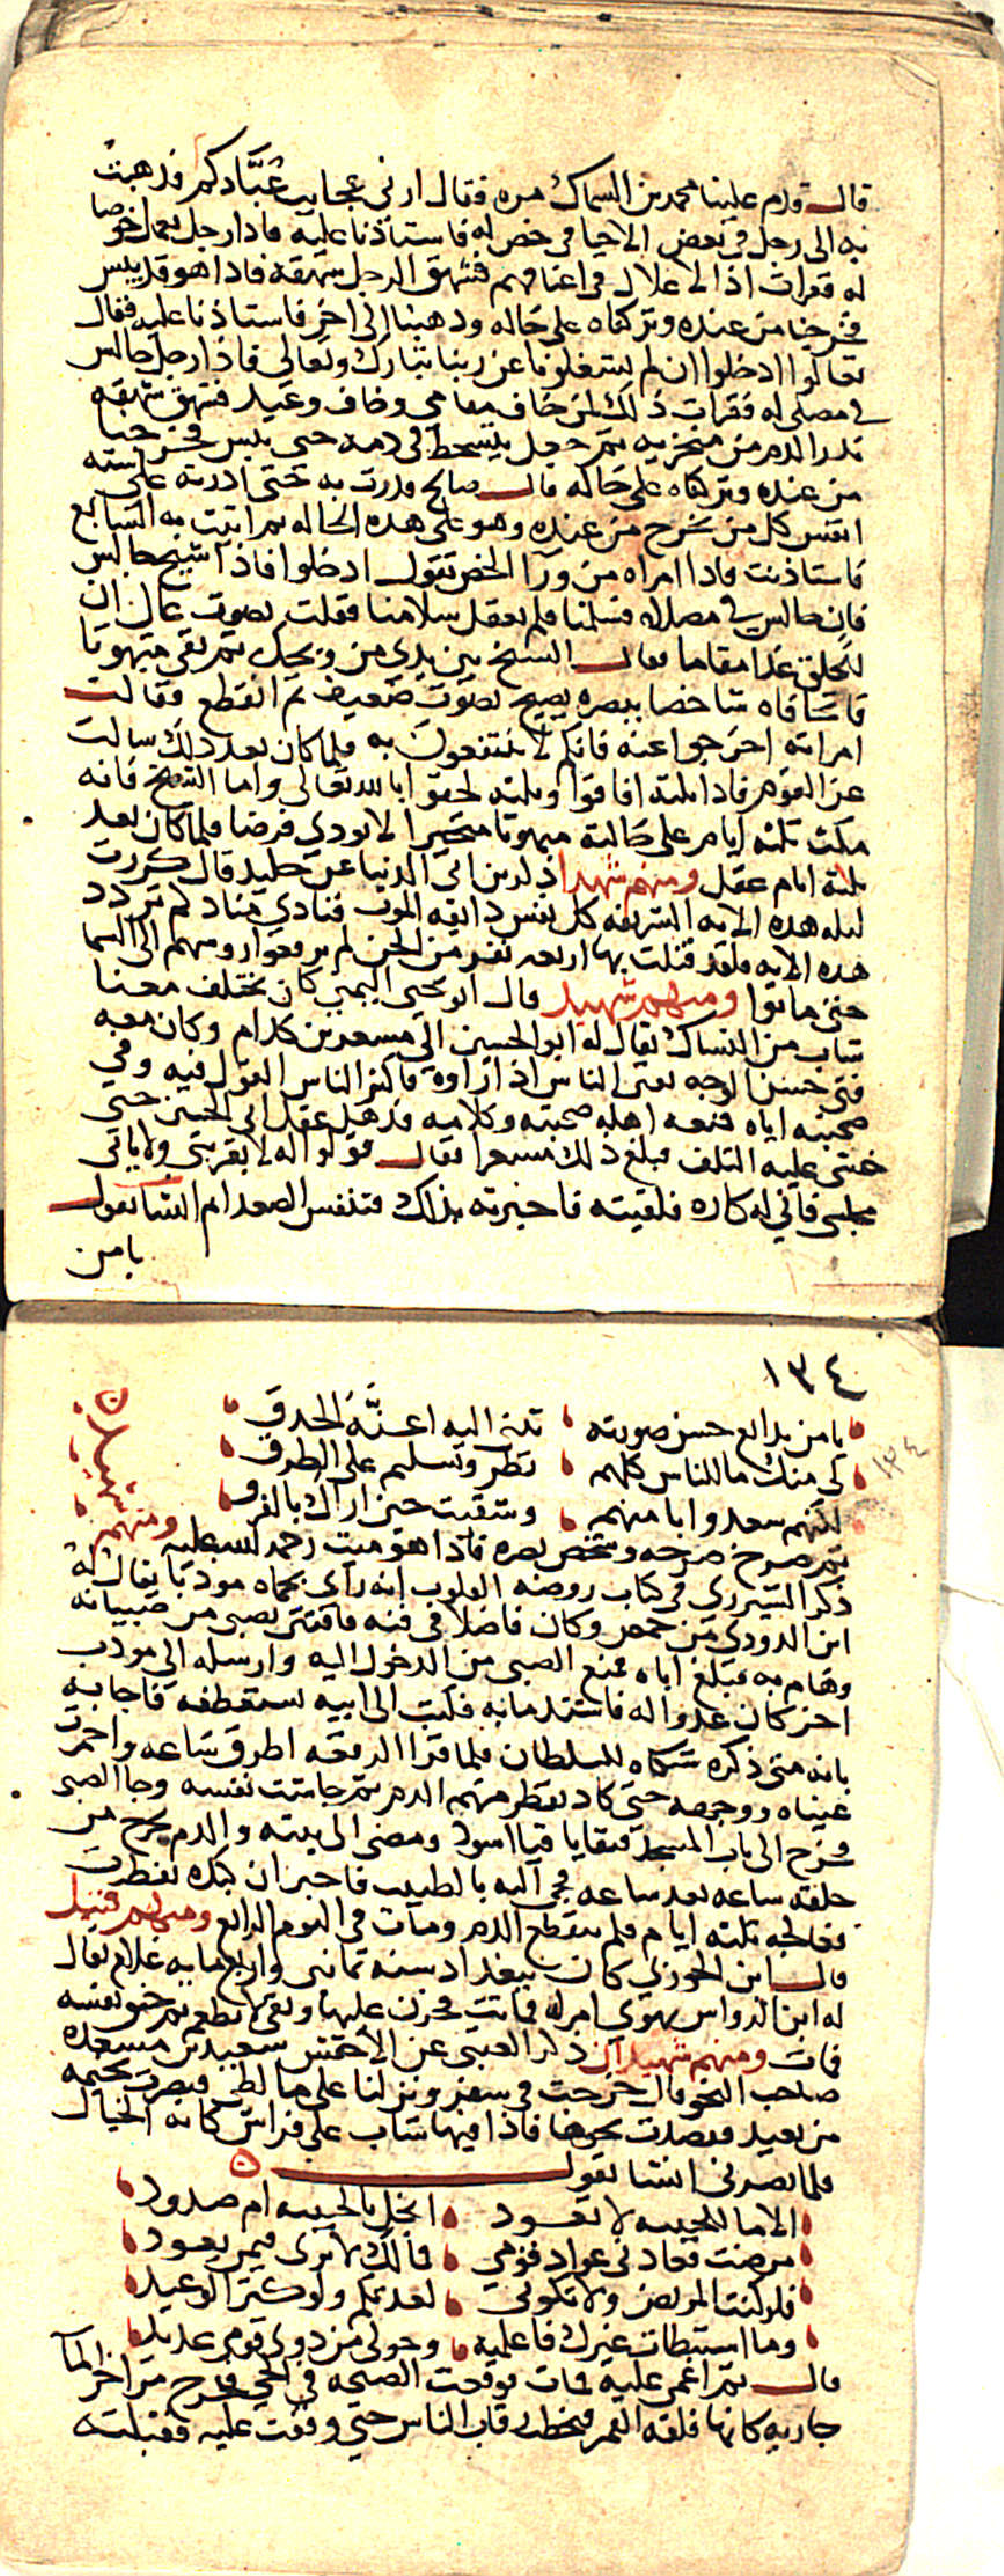 قال قدم علينا محمد بن السماك مره فقال ارني عجايب عُبَّادكم فذهبت
به الى رجل في بعض الاحيا في خص له فاستاذنا عليه فاذا رجل يعمل خوصا
له فقرات اذ الاغلال في اعناقهم فشهق الرجل شهقة فاذا هو قد يبس
فخرجنا من عنده وتركناه على حاله وذهبنا الى اخر فاستاذنا عليه فقال
تعالوا ادخلوا ان لم يشغلونا عن ربنا تبارك وتعالى فاذا رجل جالس
في مصلى له فقرات ذلك لمن خاف مقامي وخاف وعيد فشهق شهقه
بدر الدم من منخريه ثم جعل يتشحط في دمه حتى يبس فخرجنا
من عنده وتركناه على حاله قال صالح فدرت به حتى ادرته على سته
انفس كل من نخرج من عنده وهو على هذه الحاله ثم اتيت به السابع
فاستاذنت فاذا امراه من ورا الخص تقول ادخلوا فاذا شيخ جالس
فان جالس في مصلاه فسلمنا فلم يعقل سلامنا فقلت بصوت عال ان
للخلق غدا مقاما فقال الشيخ بين يدي من ويحك ثم بقي مبهوتا
فاتحا فاه شاخصا ببصره يصيح بصوت ضعيف ثم انقطع فقالت
امراته اخرجوا عنه فانكم لا تنتفعون به فلما كان بعد ذلك سالت
عن القوم فاذا ثلثه افاقوا وثلثه لحقوا بالله تعالى واما الشيخ فانه
مكث ثلثه ايام على حالته مبهوتا متحيرا لا يودي فرضا فلما كان بعد
ثلاثة ايام عقل ومنهم شهيد ابن ابي الدنيا عن خليد قال كررت
ليله هذه الايه الشريفه كل نفس ذايقه الموت فنادي مناد كم تردد
هذه الايه فلقد قتلت بها اربعه نفر من الجن لم يرفعوا روسهم الى السما
حتى ماتوا ومنهم شهيد قال ابو يحيى التيمي كان يختلف معنا
شاب من النساك يقال له ابو الحسين الي مسعر بن كدام وكان معه
فتى حسن الوجه يفتن الناس اذا راوه فاكثر الناس القول فيه وفي
صحبته اياه فمنعه اهله صحبته وكلامه فذهل عقل ابي الحسين حتى
خشي عليه التلف فبلغ ذلك مسعرا فقال قولوا له لا يقربني ولا ياتي
مجلسي فاني له كاره فلقيته فاخبرته بذلك فتنفس الصعدا ثم انشا يقول
يا من
١٣٤
يا من بدايع حسن صورته تثنى اليه اعنَّة الحدق
لي منك ما للناس كلهم نظر وتسليم على الطرق
لكنهم سعدوا بامنهم وشقيت حين اراك بالفرق
ثم صرخ صرخه وشخص بصره فاذا هو ميت رحمه الله عليه ومنهم شهيد
ذكر الشيزري في كتاب روضه القلوب انه راى بحماه مودبا يقال له
ابن الدوري من حمص وكان فاضلا في فنه فافتتن بصبي من صبيانه
وهام به فبلغ اباه فمنع الصبي من الدخول اليه وارسله الي مودب
اخر كان عدوا له فاشتد ما به فكتب الى ابيه يستعطفه فاجابه
بانه متى ذكره شكاه للسلطان فلما قرا الرقعه اطرق ساعه واحمرت
عيناه ووجهه حتى كاد يقطر منهم الدم ثم جاشت نفسه وجا الصبى
فخرج الى باب المسجد فتقايا قيا اسود ومضى الى بيته والدم يخرج من
حلقه ساعه بعد ساعه فجي اليه بالطبيب فاخبر ان كبده تفطرت
فعالجه ثلثه ايام فلم ينقطع الدم ومات في اليوم الرابع ومنهم قتيل
قال ابن الجوزي كان ببغداد سنه ثماني واربع مايه غلام يقال
له ابن الرواس يهوي امراه فماتت فحزن عليها وبقى لا يطعم ثم خنق نفسه
فمات ومنهم شهيدان ذكر العتبي عن الاخفش سعيد بن مسعده
صاحب النحو قال خرجت في سفر ونزلنا على ما لطي فبصرت بخيمه
من بعيد فقصدت نحوها فاذا فيها شاب على فراش كانه الخيال
فلما بصر بي انشا يقول
الا ما للحبيبه لا تعود ابخل بالحبيبه ام صدود
مرضت فعادني عواد قومي فمالك لا ترى فيمن يعود
فلو كنت المريض ولا تكوني لعدتكم ولو كثر الوعيد
وما استبطات غيرك فاعلميه وحولي من ذوي قومي عديد
قال ثم اغمى عليه فمات فوقعت الصيحه في الحي فخرج من اخر الما
جاريه كانها فلقه القمر فتخطت رقاب الناس حتي وقفت عليه فقبلته